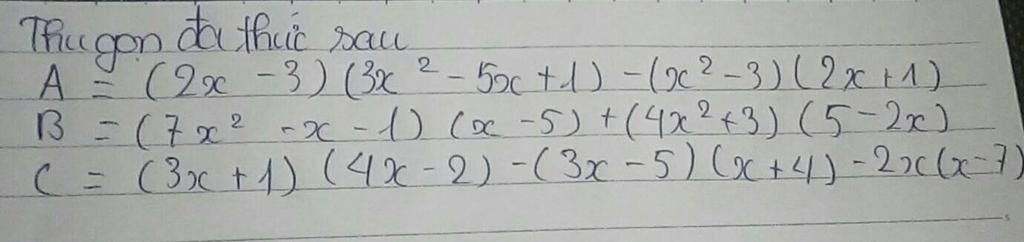 Thu gọn đa thức sau
A = (2x - 3) (3x² - 5x + 1) - (x² - 3) (2x + 1)
B = (7x² - x - 1) (x - 5) + (4x² + 3) (5 - 2x)
C = (3x + 1) (4x - 2) - (3x - 5) (x + 4) - 2x(x - 7)